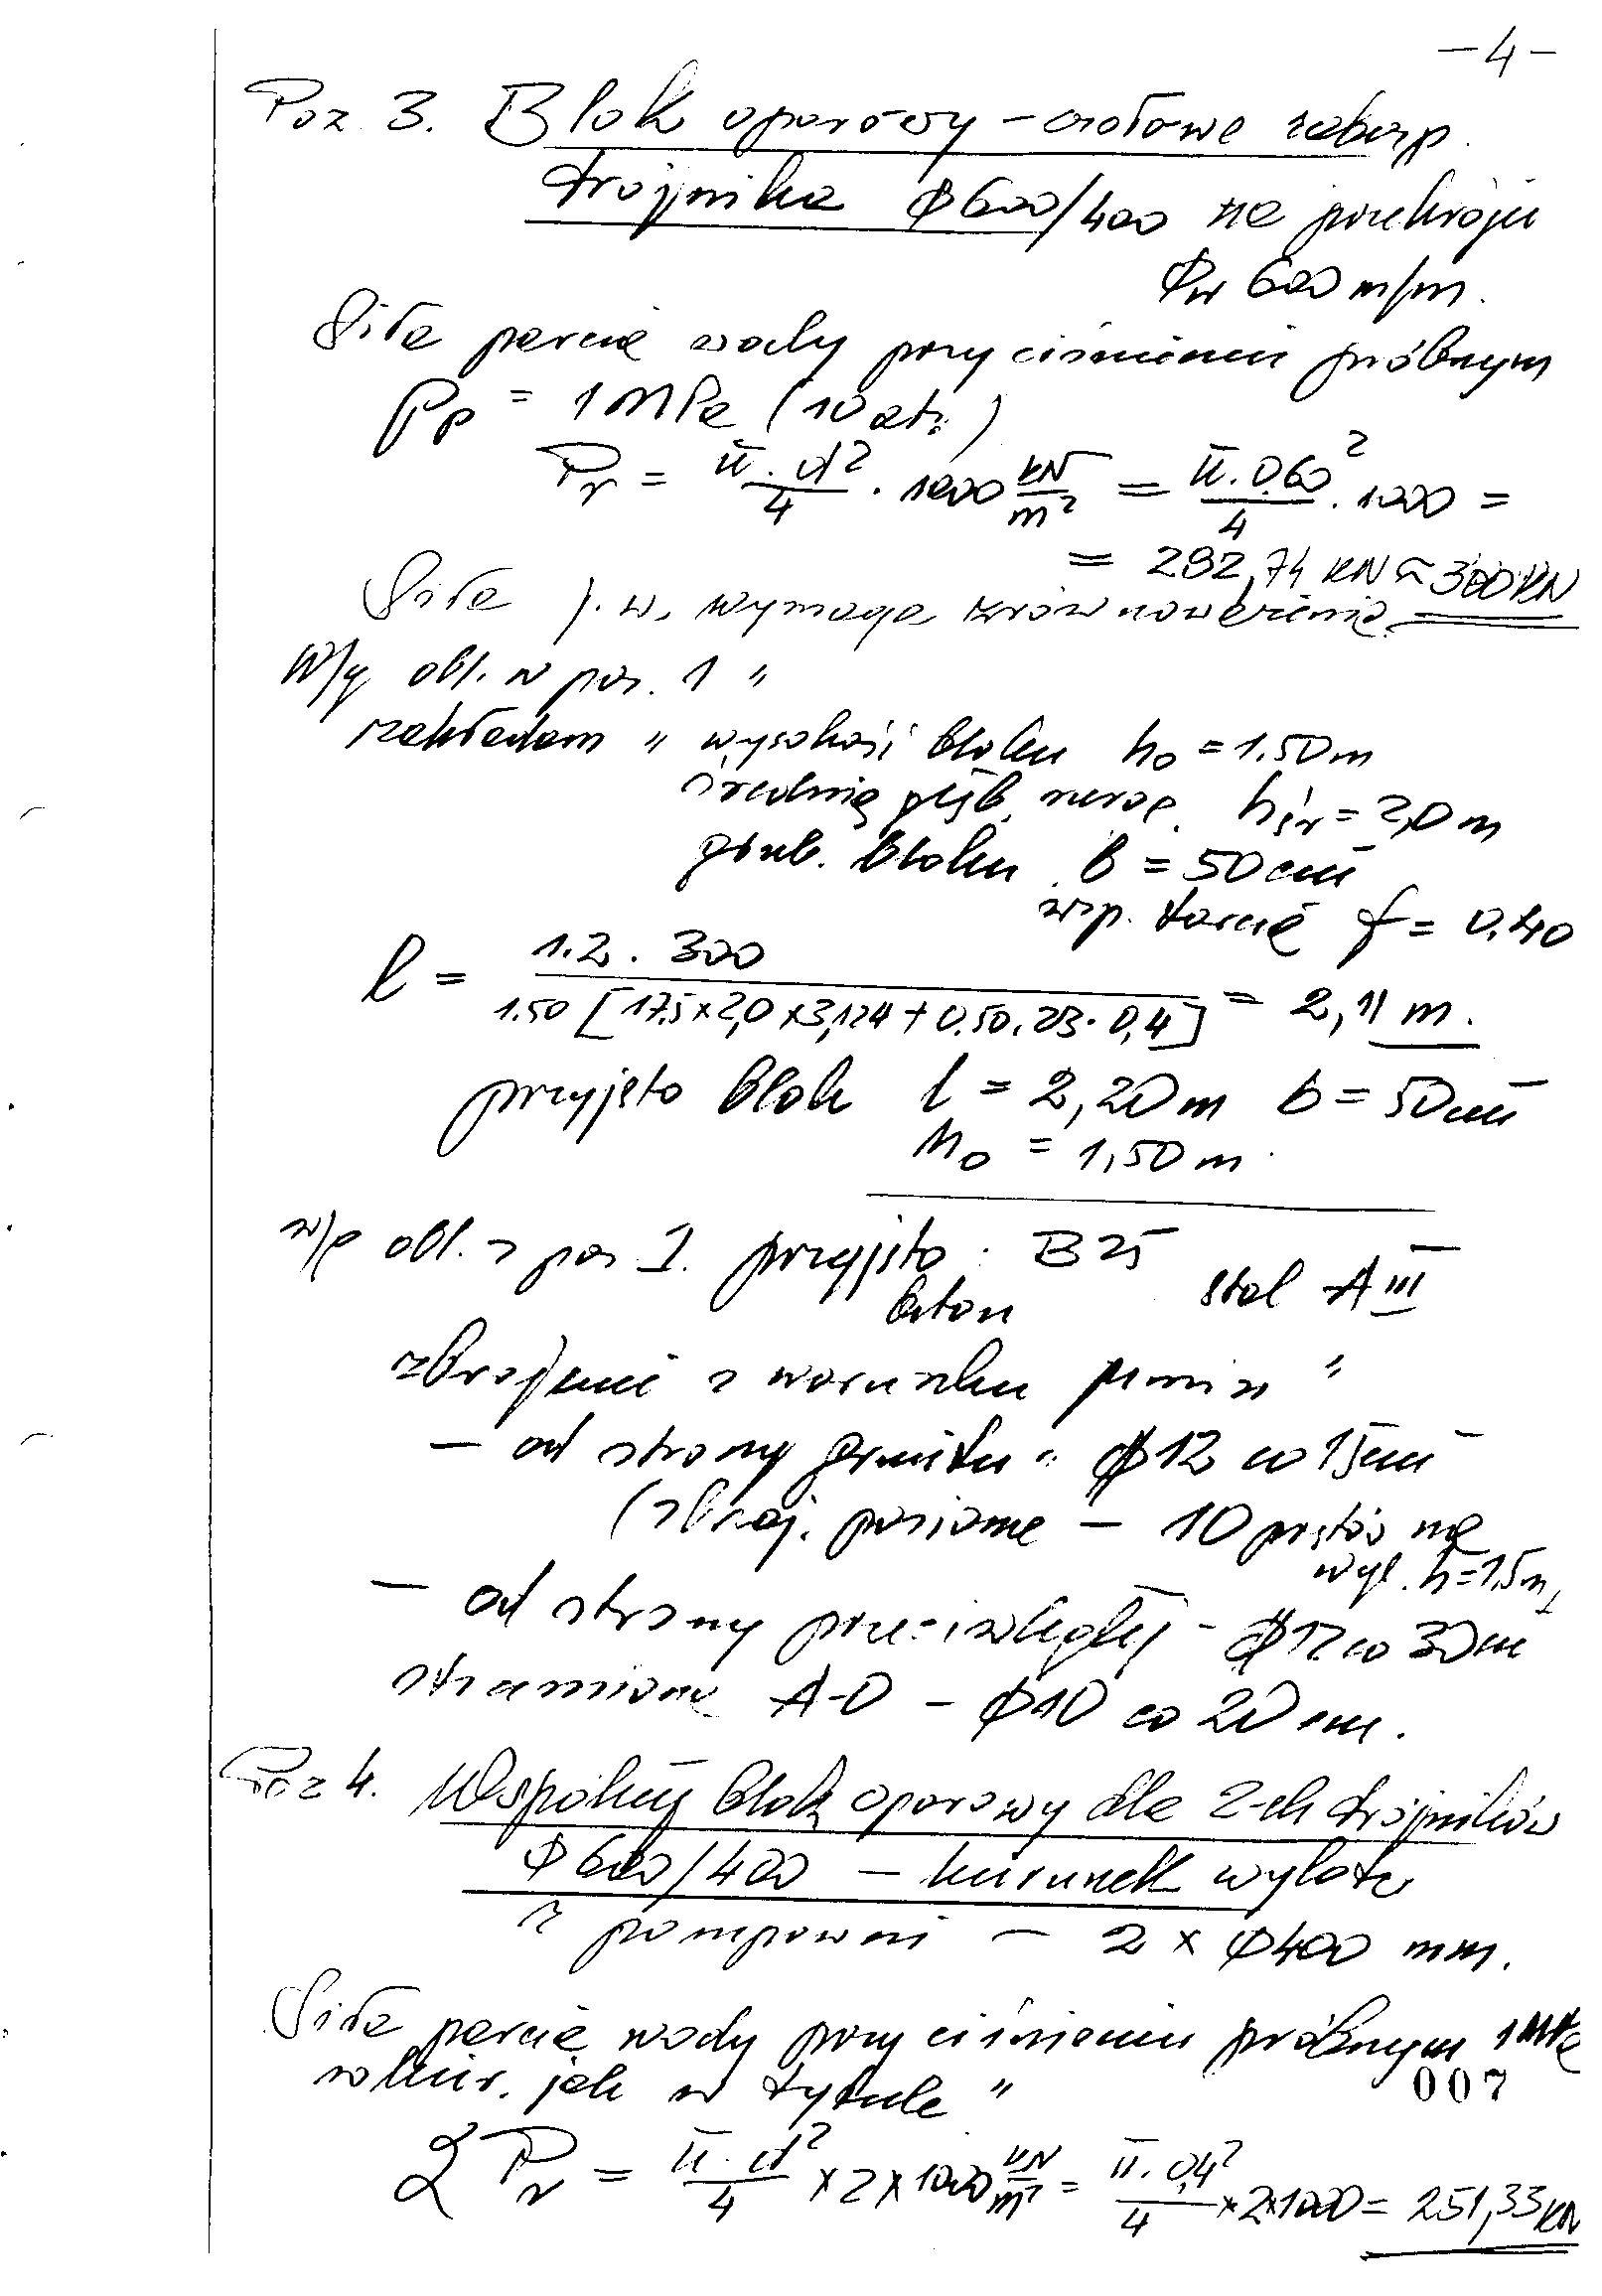 -4-
Poz. 3. Blok oporowy - czołowe zabezp.
trójnika ϕ600/400 na przekroju
ϕw 600 m/m.
Siła parcia wody przy ciśnieniu próbnym
Pp = 1 MPa (10 atn)
Pr = π·d²/4 · 1000 kN/m² = π·0,60²/4 · 1000 =
= 282,74 kN ≈ 300 kN
Siła j.w. wymaga zrównoważenia
W/g obl. w poz. 1 "
zakładam " wysokość bloku ho = 1.50 m
średnią głęb. hśr = 2,0 m
grub. bloku b = 50 cm
wsp. tarcia f = 0.40
l = 1.2 · 300 / 1.50 [17,5 x 2,0 x 3,124 + 0.50 · 23 · 0,4] = 2,11 m.
przyjęto blok l = 2,20 m b = 50 cm
ho = 1,50 m
w/g obl. z poz 1. przyjęto: B25
beton stal A III
zbrojenie z warunku μ min "
- od strony gruntu " ϕ12 co 15 cm
(zbroj. poziome - 10 prętów na
wys. h = 1,5 m)
- od strony przeciwległej - ϕ12 co 30 cm
strzemiona A-0 - ϕ10 co 20 cm.
Poz 4. Wspólny blok oporowy dla 2-ch trójników
ϕ600/400 - kierunek wylotu
z pompowni - 2 x ϕ400 mm.
Siła parcia wody przy ciśnieniu próbnym 1 MPa
w kier. jak w tytule "
007
Σ Pr = π·d²/4 x 2 x 1000 kN/m² = π·0,4²/4 x 2 x 1000 = 251,33 kN